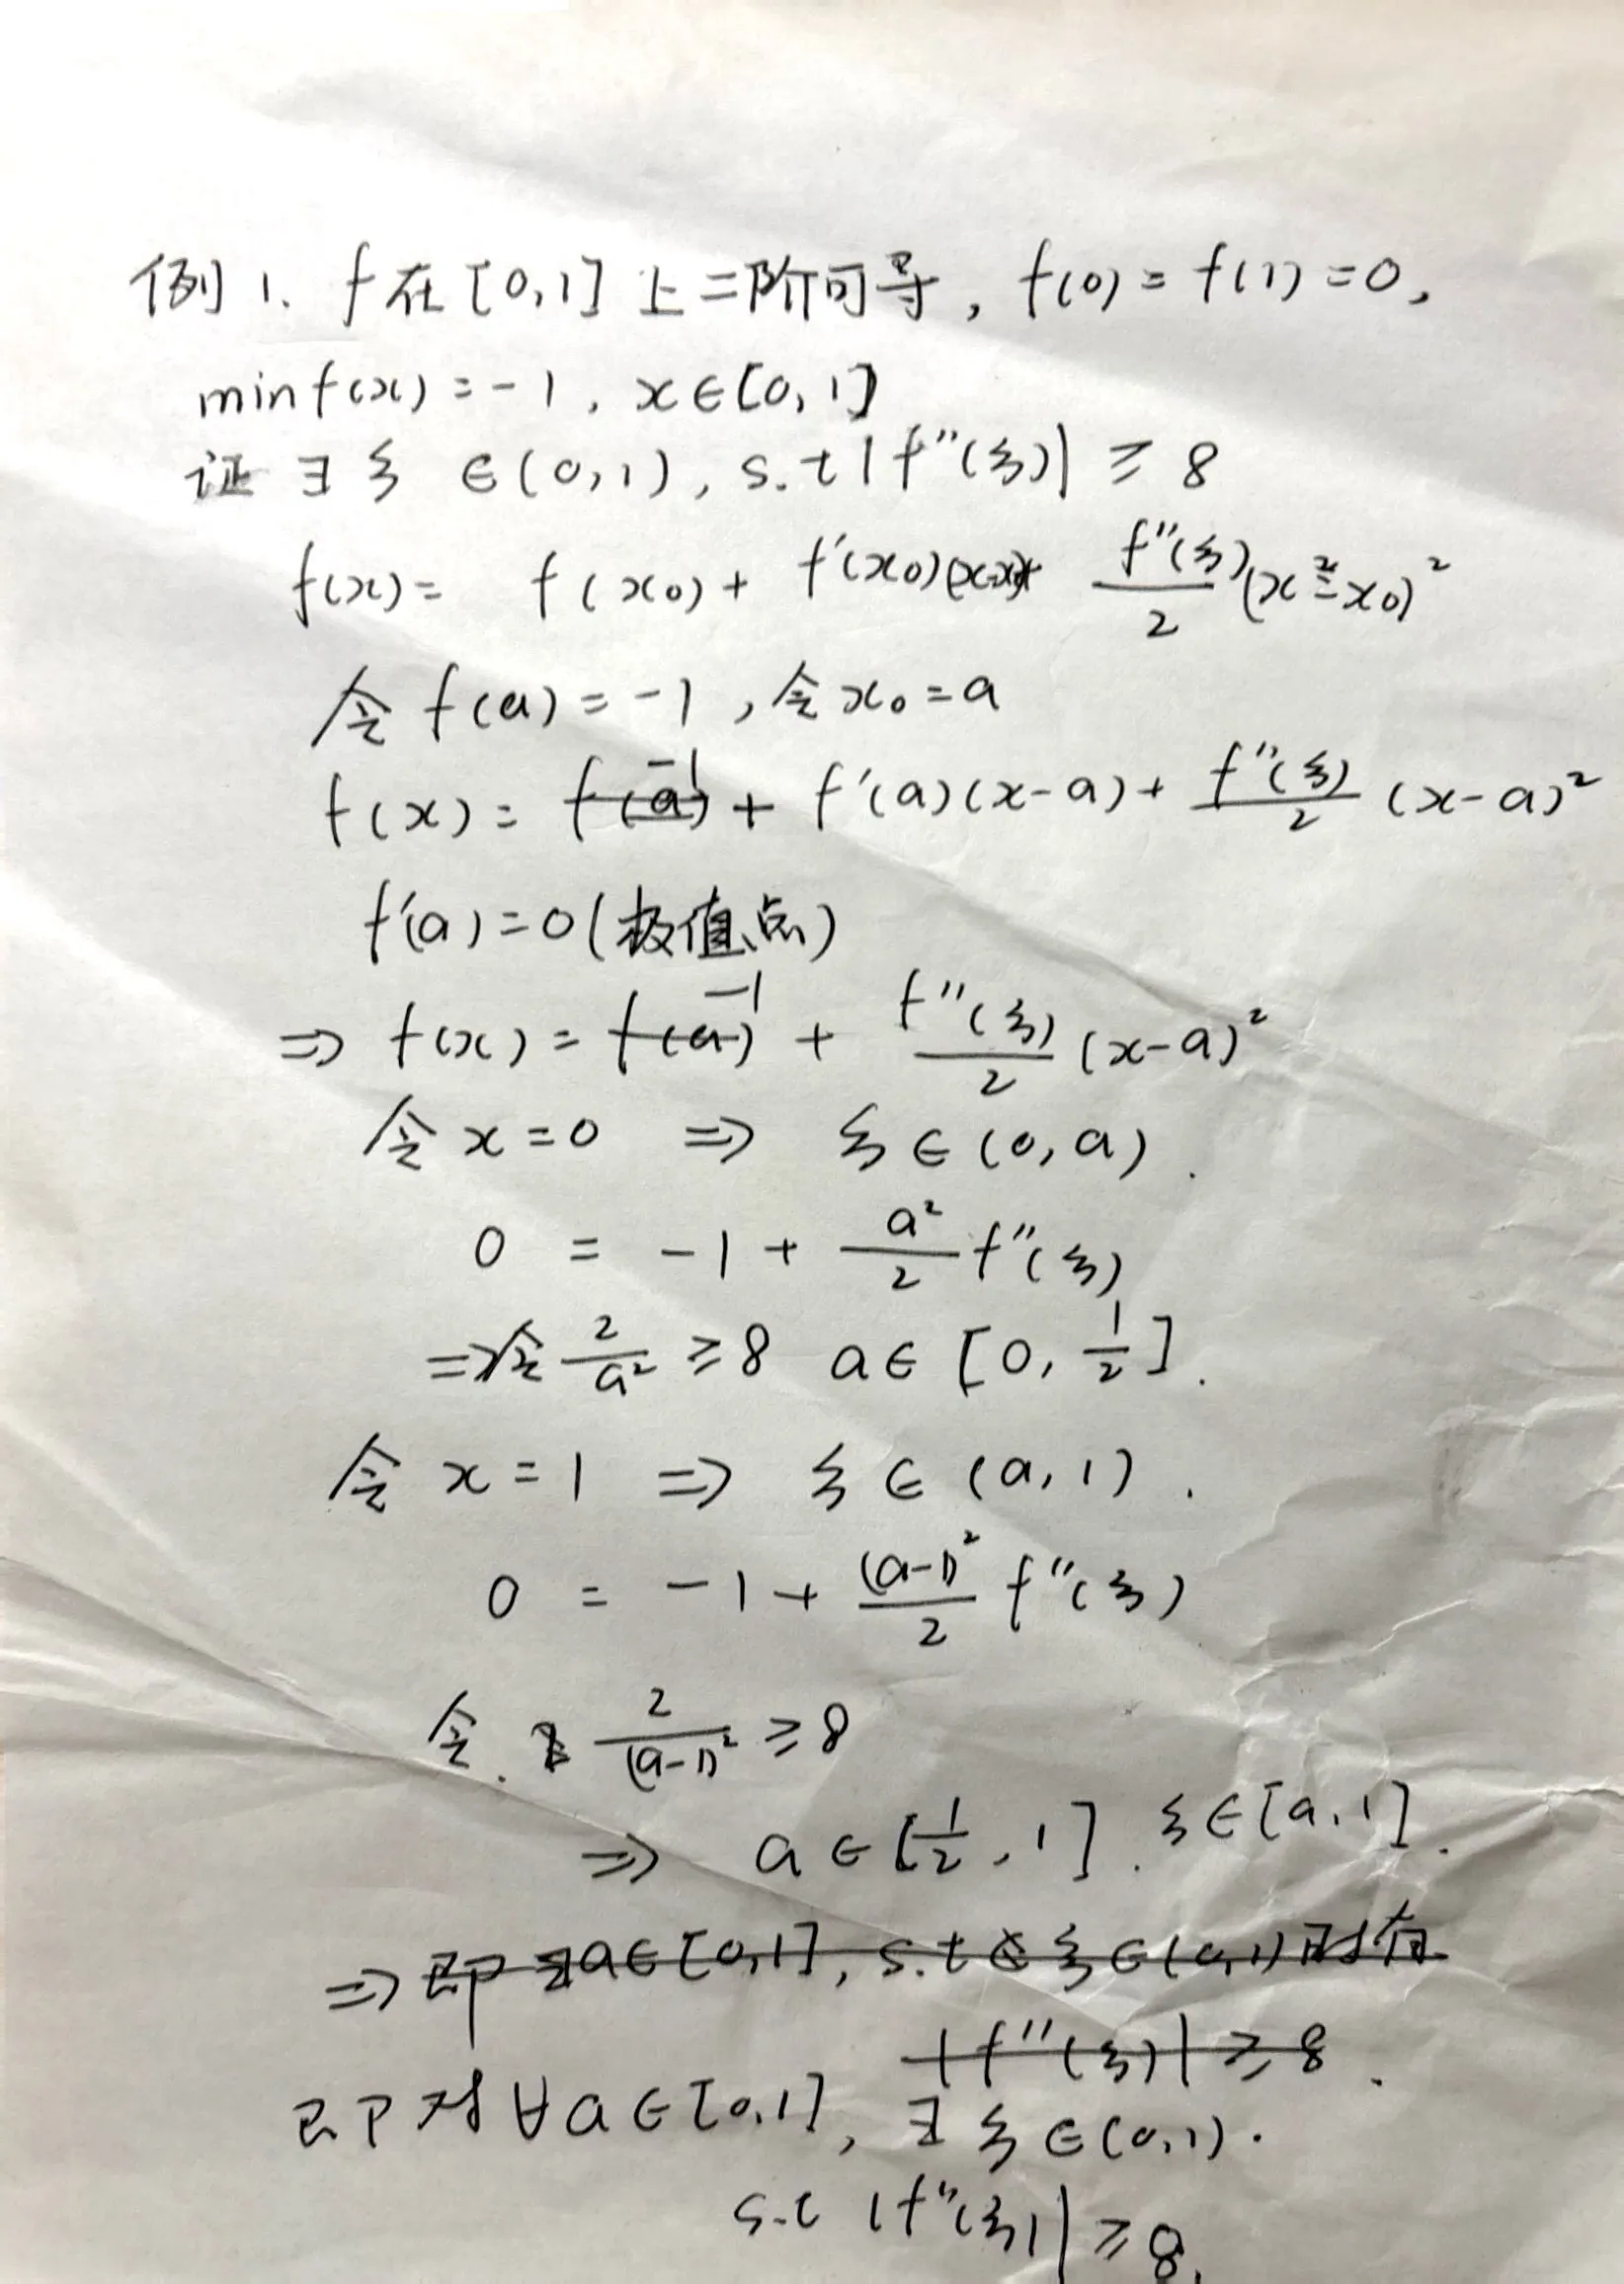 例1. f在[0,1]上二阶可导, f(0)=f(1)=0,
minf(x)=-1, x∈[0,1]
证∃ξ ∈(0,1), s.t |f''(ξ)| ≥ 8
f(x)= f(x₀)+ f'(x₀)(x-x₀)+ f''(ξ)/2 (x-x₀)²
令 f(a)=-1, 令x₀=a
f(x)= -1 + f'(a)(x-a)+ f''(ξ)/2 (x-a)²
f'(a)=0(极值点)
⇒ f(x)= -1 + f''(ξ)/2 (x-a)²
令 x=0 ⇒ ξ∈(0,a).
0 = -1+ a²/2 f''(ξ)
⇒令 2/a² ≥8 a∈[0,1/2].
令 x=1 ⇒ ξ∈(a,1).
0 = -1+ (a-1)²/2 f''(ξ)
令. 2/(a-1)² ≥8
⇒ a∈[1/2,1]. ξ∈[a,1].
⇒ 即∃a∈[0,1], s.t ξ∈(0,1)时有
|f''(ξ)|≥8.
即对∀a∈[0,1], ∃ξ∈(0,1).
s.t |f''(ξ)|≥8.